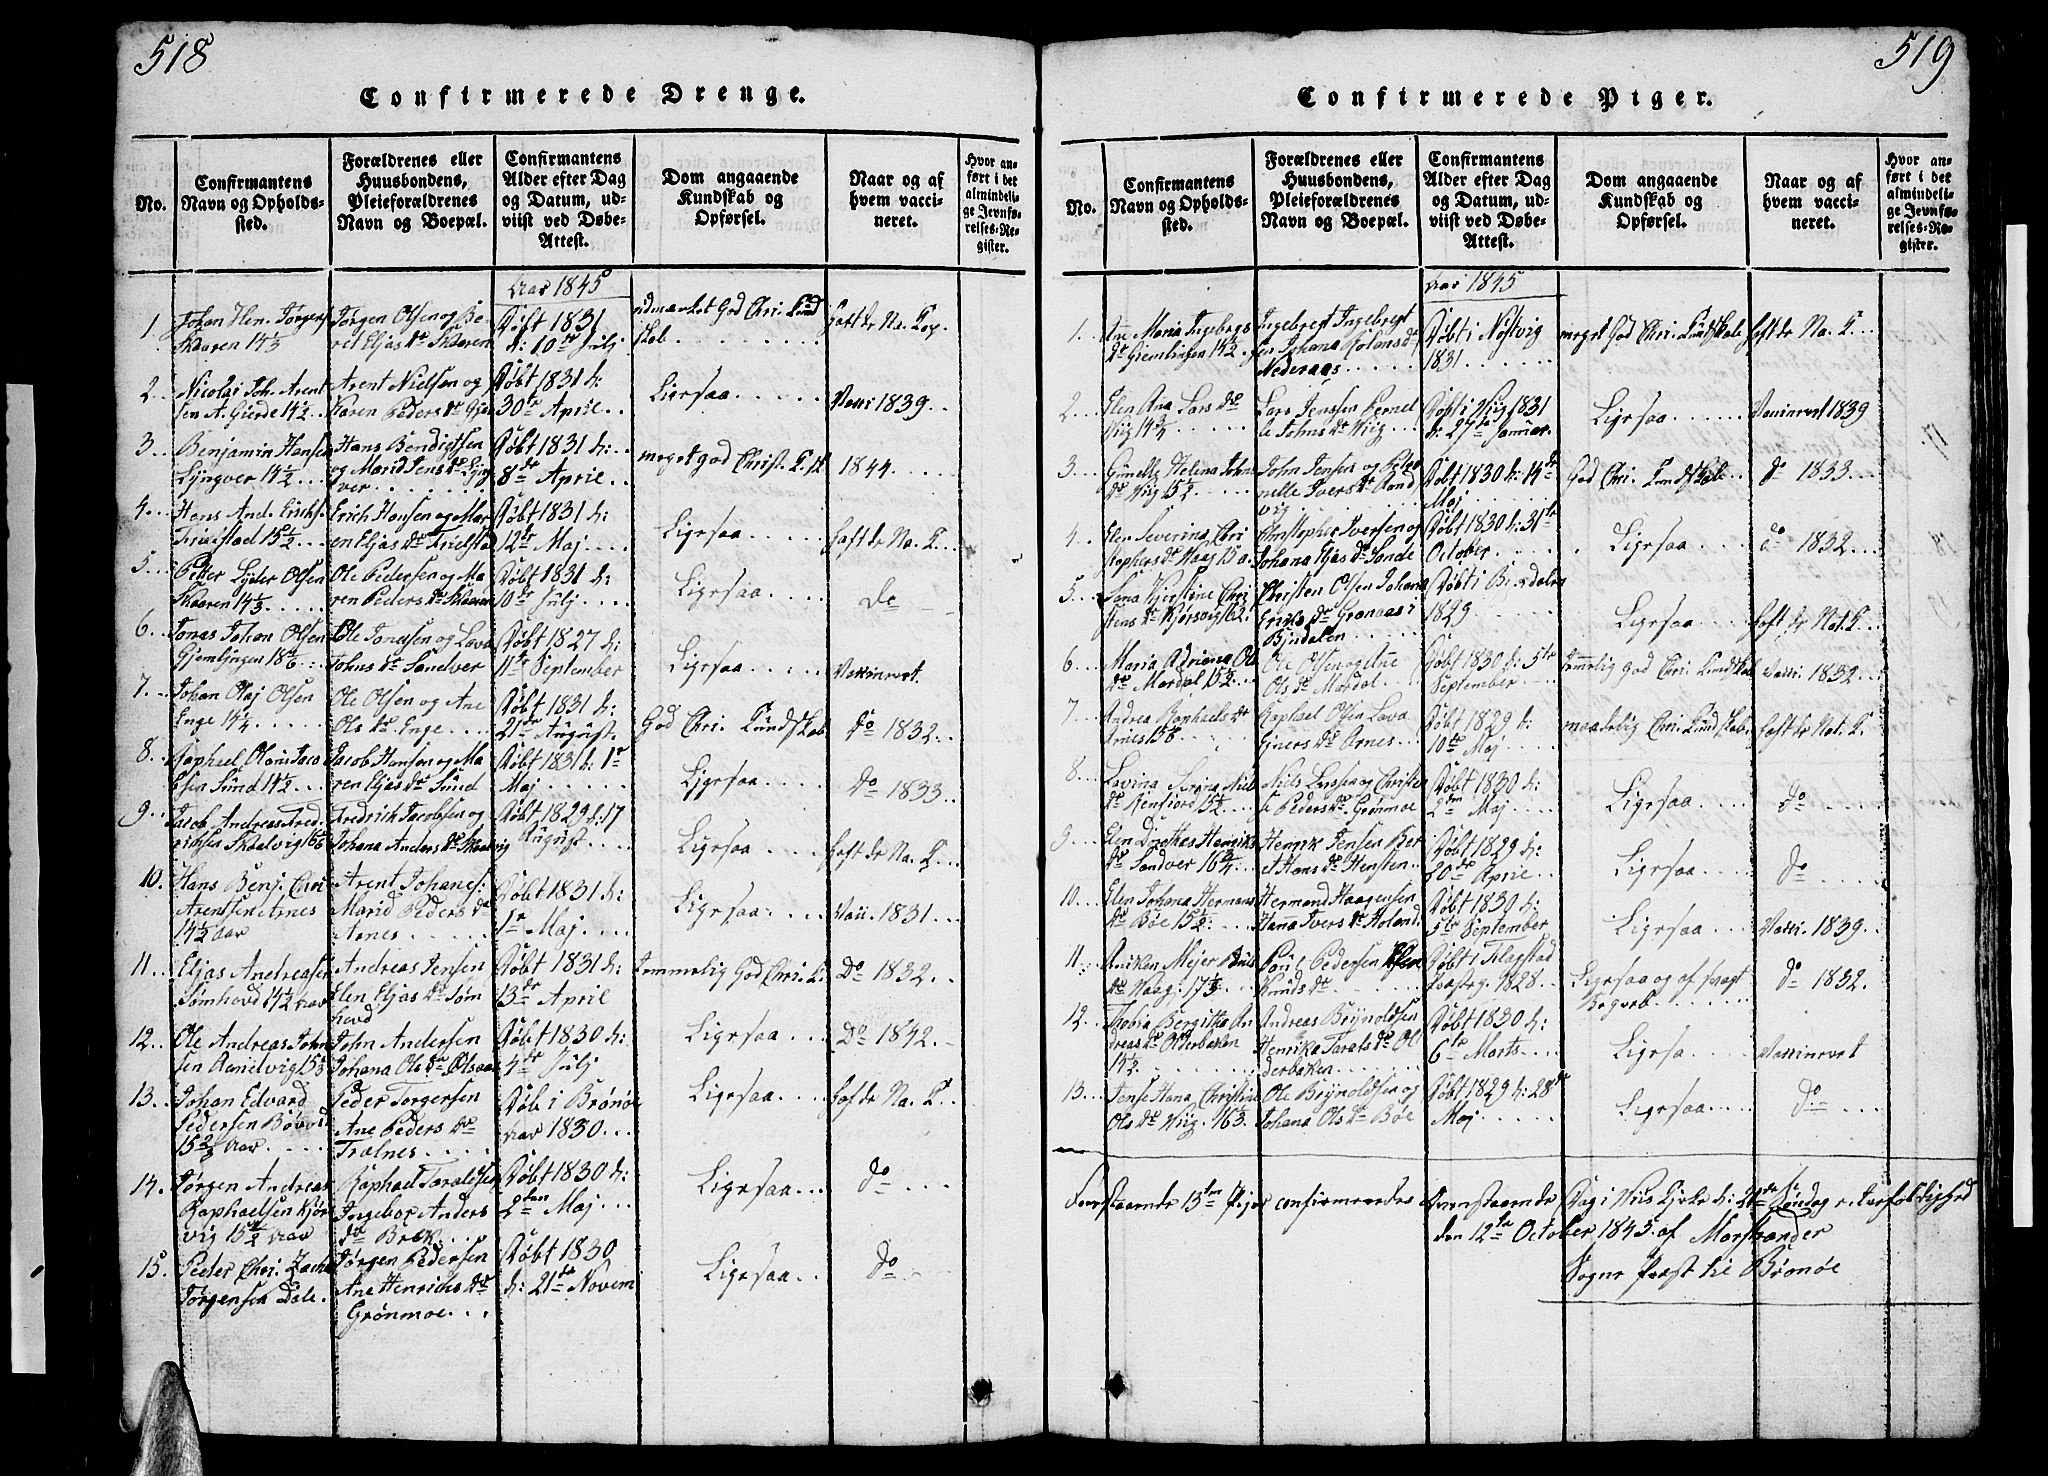 518
Confirmerede Drenge.
No.
Confirmantens
Navn og Opholds-
sted.
Forældrenes eller
Huusbondens,
Pleieforældrenes
Navn og Boepæl.
Confirmantens
Alder efter Dag
og Datum, ud-
viist ved Døbe-
Attest.
Dom angaaende
Kundskab og
Opførsel.
Naar og af
hvem vacci-
neret.
Hvor an-
ført i det
almindeli-
ge Jevnfø-
relses-Re-
gister.
Aar 1845
1.
Johan Hen. Jørgens
Skaaren 14 1/3
Jørgen Olsen og Be-
ret Eljas Dr Skaaren
Døbt 1831
d: 10de Julj
udmærket God Chri. Kund
skab
haft de Na. Kop.
2.
Nicolai Joh. Arent
sen A. Gierde 14 1/2
Arent Nielsen og
Karen Peders Dr Gjer
Døbt 1831 d:
30te April
Ligesaa
Vacci 1839
3.
Benjamin Hansen
Lyngver 14 1/2
Hans Bendigtsen
og Marid Jens Dr Lyng
ver
Døbt 1831 d:
8de April
meget god Christ. K.
1844
4.
Hans And. Erichs.
Trælstad 15 1/2
Erich Hansen og Mar
en Eljas Dr Trælstad
Døbt 1831 d:
12te Maj
Ligesaa
haft de Na. K.
5.
Petter Lyder Olsen
Skaaren 14 1/3
Ole Pedersen og Ma
ren Peders Dr Skaaren
Døbt 1831 d:
10de Julj
Ligesaa
Do
6.
Jonas Johan Olsen
Gjemlingen 18 1/6
Ole Jonassen og Lava
Johns Dr Sandver
Døbt 1827 d:
11te September
Ligesaa
Vaccineret.
7.
Johan Olaj Olsen
Enge 14 1/4
Ole Olsen og Ane
Ols Dr Enge
Døbt 1831 d:
21de August
God Chri. Kundskab
Do 1832
8.
Raphael Olai Jaco
bsen Sund 14 1/2
Jacob Hansen og Ma
ren Eljas Dr Sund
Døbt 1831 d: 1r
Maj
Ligesaa
Do 1833
9.
Jacob Andreas Fred
richsen Skaalvig 16 1/6
Fredrich Jacobsen og
Johana Anders Dr Skaalvig
Døbt 1829 d: 17
August
Ligesaa
haft de Na. K.
10.
Hans Benj. Chri
Arentsen Arnes
14 1/2 Aar
Arent Johanes:
Marid Peders Dr
Arnes
Døbt 1831 d:
1r Maj
Ligesaa
Vacci. 1831
11.
Eljas Andreasen
Sømhovd 14 1/2 Aar
Andreas Jensen
Elen Eljas Dr Søm
hovd
Døbt 1831 d:
13de April
temmelig God Chri. K.
Do 1832
12.
Ole Andreas John
sen Ramtvig 15 1/3
John Andersen
Johana Ols Dr Olsaa
Døbt 1830 d:
4de Julj
Ligesaa
Do 1842
13.
Johan Edvard
Pedersen
15 2/3 Aar
Peder Torgersen
Ane Peders Dr
Trælnes
Døb i Brønøe
Aar 1830
Ligesaa
haft de Na. K.
14.
Jørgen Andreas
Raphaelsen Kjør
vig 15 1/2 Aar
Raphael Taraldsen
Ingebor Anders
Dr Bræk
Døbt 1830 d:
2den Maj
Ligesaa
Do
15.
Peder Chri. Zacha
Jørgensen Dale
Jørgen Pedersen
Ane Henrichs Dr
Grønmoe
Døbt 1830
d: 21de Novem
Ligesaa
Do
519
Confirmerede Piger.
No.
Confirmantens
Navn og Opholds-
sted.
Forældrenes eller
Huusbondens,
Pleieforældrenes
Navn og Boepæl.
Confirmantens
Alder efter Dag
og Datum, ud-
viist ved Døbe-
Attest.
Dom angaaende
Kundskab og
Opførsel.
Naar og af
hvem vacci-
neret.
Hvor an-
ført i det
almindeli-
ge Jevnfø-
relses-Re-
gister.
Aar 1845
1.
Ane Maria Ingebrgs
Dr Gjemlingen 14 1/2
Ingebregt Ingebregt
sen Johana Rolans Dr
Nederaas
Døbt i Nøstvig
1831
meget God Chri. Kundskab
haft de Na. K
2.
Elen Ana Lars Dr
Viig 14 3/4
Lars Jenssen Pernel
le Johns Dr Viig
Døbt i Viig 1831
d: 27de Januar
Ligesaa
Vaccineret 1839
3.
Gunelle Helena Johns
Dr Viig 15 1/2
John Jensen og Peter
nelle Ivers Dr Rand
vig
Døbt 1830 d: 14de
Maj
God Chri. Kundskab
Do 1833
4.
Elen Severina Chri
stophers Dr Vaag 15 a.
Christopher Iversen og
Johana Eljas Dr Sande
Døbt 1830 d: 31te
October
Ligesaa
do 1832
5.
Chri
stens Dr Kjørsvig
Christen Olsen Johana
Erichs Dr Granaas i
Bjndalen
Døbt i Bindalen
1829
Ligesaa
haft de Nat. K.
6.
Maria Adriana Ols
Dr Mardal 15 1/2
Ole Olsen og Ane
Ols Dr Mardal
Døbt 1830 d: 5te
September
temmelig God Chri. Kundskab
Vacci. 1832
7.
Andrea Raphaels Dr
Arnes
Raphael Olsen Lava
Ejners Dr Arnes
Døbt 1829 d:
10de Maj
maadelig Chri. Kundskab.
haft de Nat. K.
8.
Lavina Niels
Dr Renfiord 15 1/2
Niels og Christen
se Peders Dr Grønmoe
Døbt 1830 d:
2den Maj
Ligesaa
Do
9.
Elen Dorothea Henriks
Dr Sandver 16 1/4
Henrik Jensen Ber
et Hans Dr Hensten
Døbt 1829 d:
20de April
Ligesaa
Do
10.
Elen Johana Hermans
Dr Bøe 15 1/2
Hermand Haagensen
Hanna Ivers Dr Holand
Døbt 1830 d:
5te September
Ligesaa
Vacci. 1839
11.
Aniken Mejer Povls
Dr Vaag. 17 1/3
Povl Pedersen
Knuds Dr
Døbt i Flagstad
1828
Ligesaa og af svagt
Begreb
Do 1832
12.
Tobia Bergitha An
dreas Dr Olderbæken
15 1/2
Andreas Brynoldsen
Henrika Tarals Dr Ol
derbæken
Døbt 1830 d:
6te Marts
Ligesa
Vaccineret
13.
Jense Hana Christine
Ols Dr Viig. 16 1/3
Ole Brynoldsen og
Johana Ols Dr Bøe
Døbt 1829 d: 28de
Maj
Ligesaa
Do
13ten Piger confirmeredes Ovenstaaende Dag i Viis Kjrke d: 21de Søndag e. Trefoldighed
den 12te October 1845 af
Sogne Præst til Brønøe